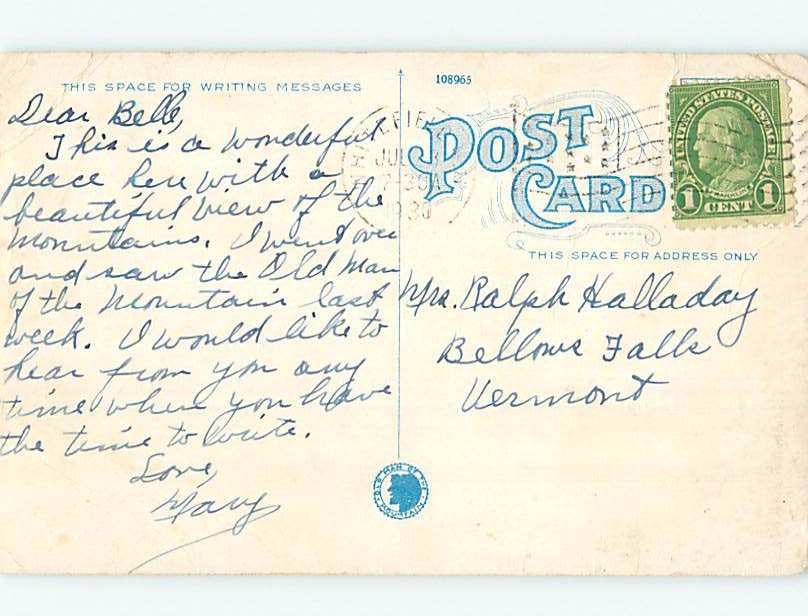 THIS SPACE FOR WRITING MESSAGES
Dear Belle,
This is a wonderful
place here with a
beautiful view of the
mountains. I went over
and saw the Old Man
of the Mountain last
week. I would like to
hear from you any
time when you have
the time to write.
Love,
Mary
108965
POST
CARD
JUL
7-30A
1930
UNITED STATES POSTAGE
FRANKLIN
1 CENT 1
THIS SPACE FOR ADDRESS ONLY
Mrs. Ralph Halladay
Bellows Falls
Vermont
OLD MAN OF THE
MOUNTAIN